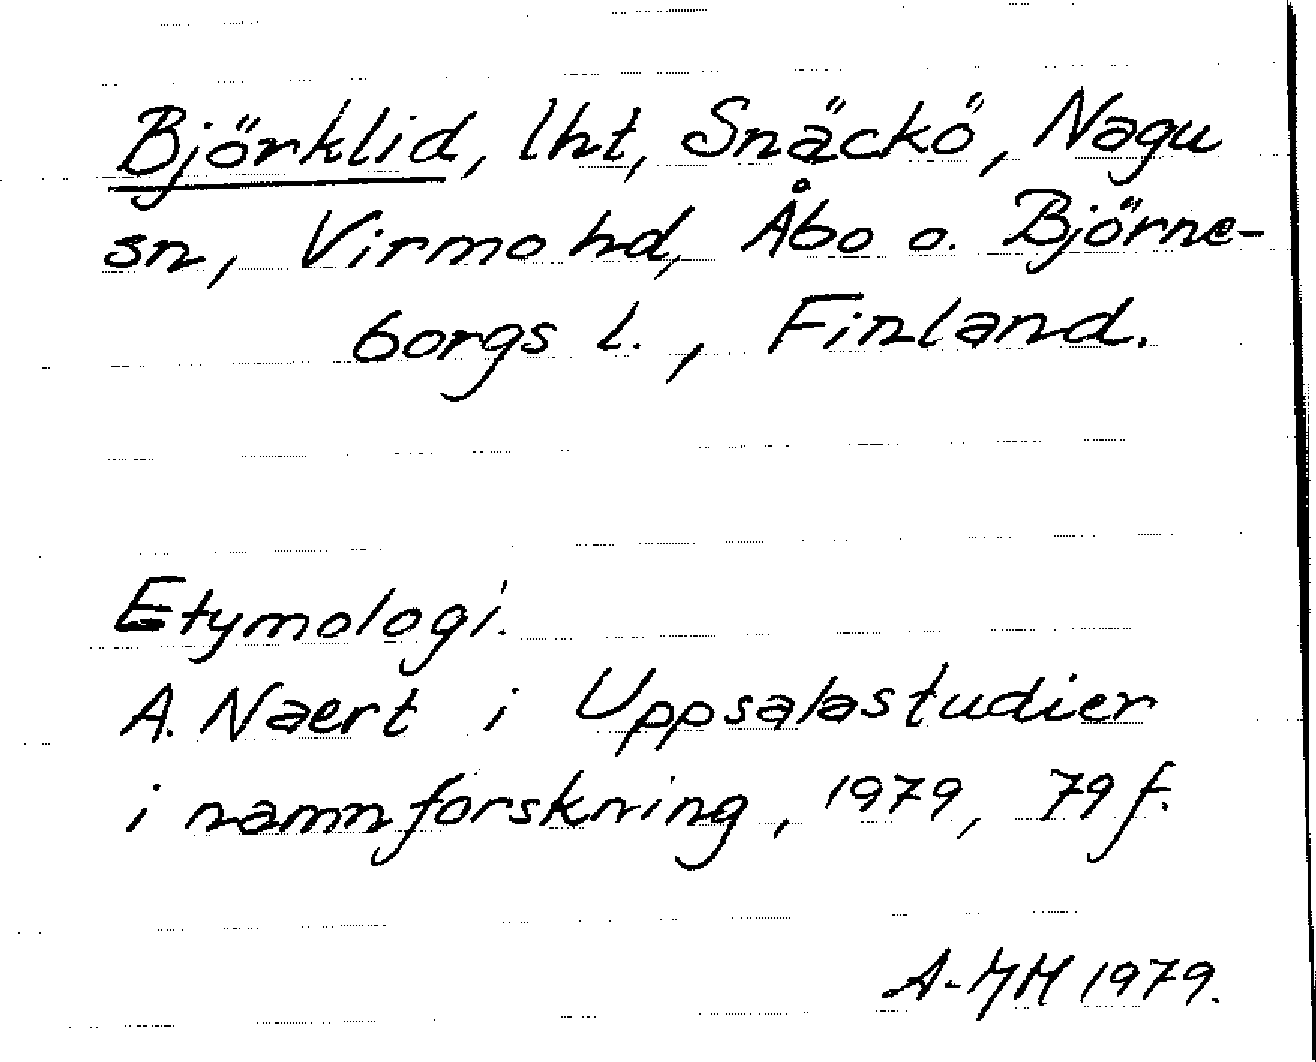 Björklid, lht, Snäckö, Nagu
sn, Virmo hd, Åbo o. Björne-
borgs l., Finland.
Etymologi.
A. Naert i Uppsalastudier
i namnforskning, 1979, 79 f.
A-MH 1979.